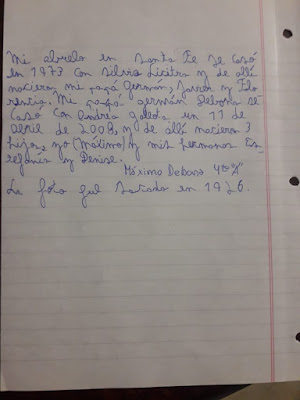 Mi abuelo en Santa Fe se casó
en 1973 con Silvia Licitra y de allí
nacieron mi papá Germán, y Flo
rencia. Mi papá germán Debona se
casó con Andrea un 11 de
abril de 2008, y de allí nacieron 3
hijos, yo (Máximo) y mis hermanas Es
tefanía y Denise.
Máximo Debona 4º"A"
La foto fué sacada en 1926.